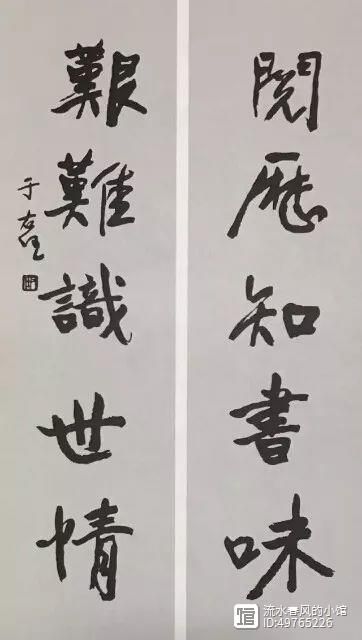 閱歷知書味
艱難識世情
于右任
流水春风的小馆
ID:49765226